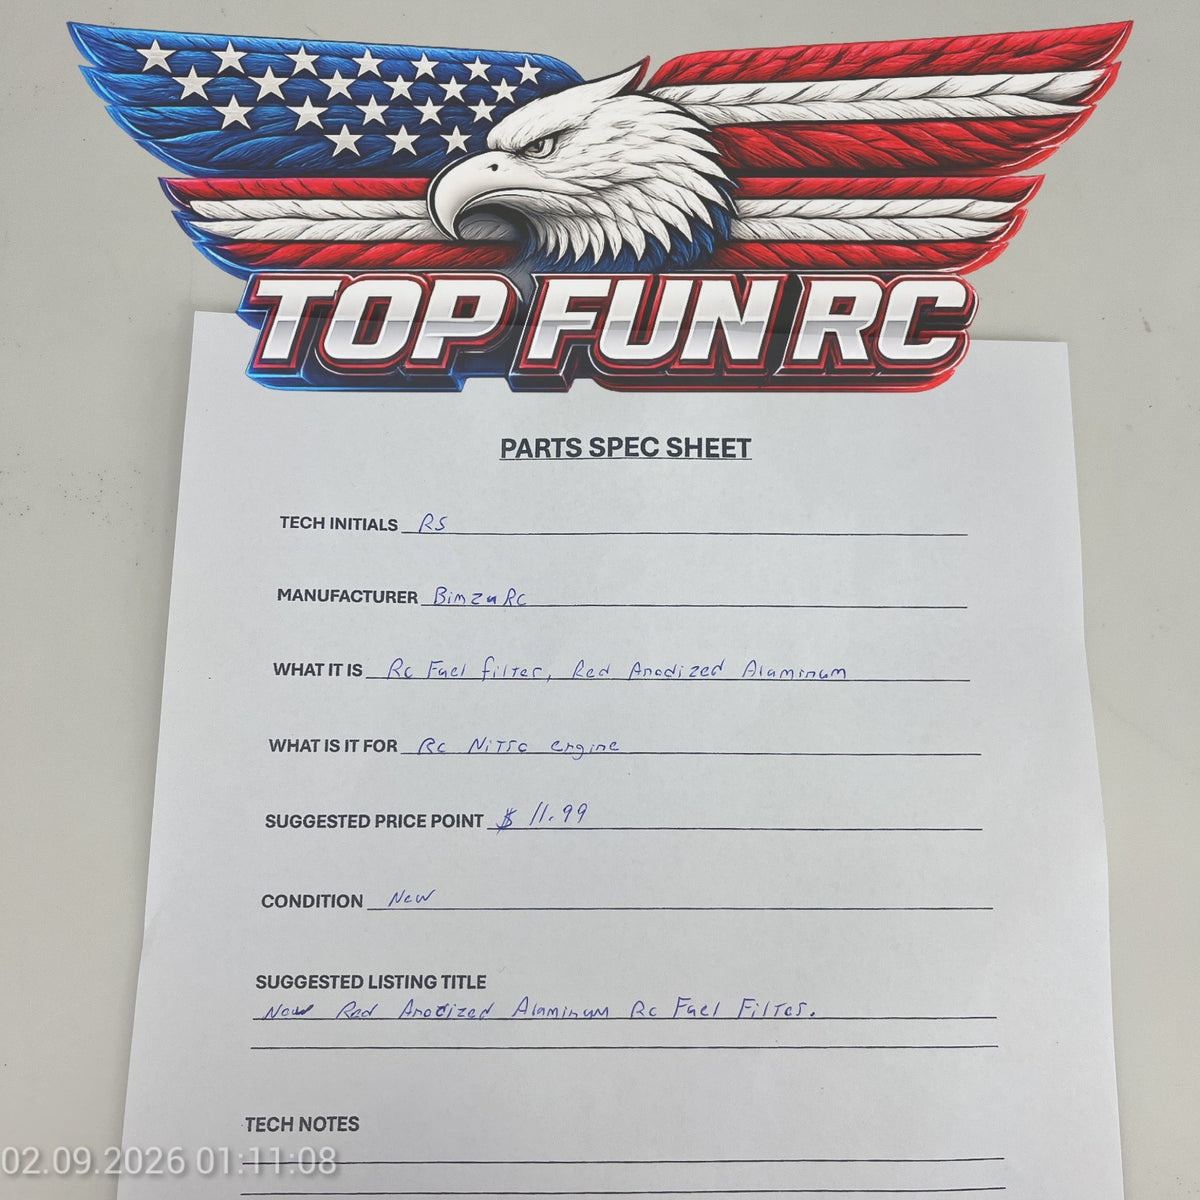 TOP FUN RC
PARTS SPEC SHEET
TECH INITIALS RS
MANUFACTURER BimzuRc
WHAT IT IS Rc Fuel filter, Red Anodized Aluminum
WHAT IS IT FOR Rc Nitro engine
SUGGESTED PRICE POINT $ 11.99
CONDITION New
SUGGESTED LISTING TITLE
New Red Anodized Aluminum Rc Fuel Filter.
TECH NOTES
02.09.2026 01:11:08